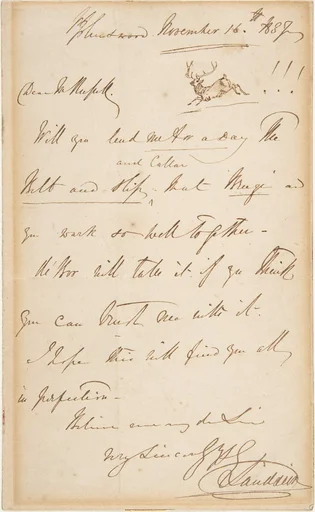 November 16th 1857
!!!
Dear Mr Russell.
Will you lend me for a day the
and Collar
Belt and slip, that " and
you work so well together -
will take it if you think
you can trust me with it.
I hope this will find you all
in perfection -
Believe me my dear Sir
very Sincerely Yrs
E Landseer